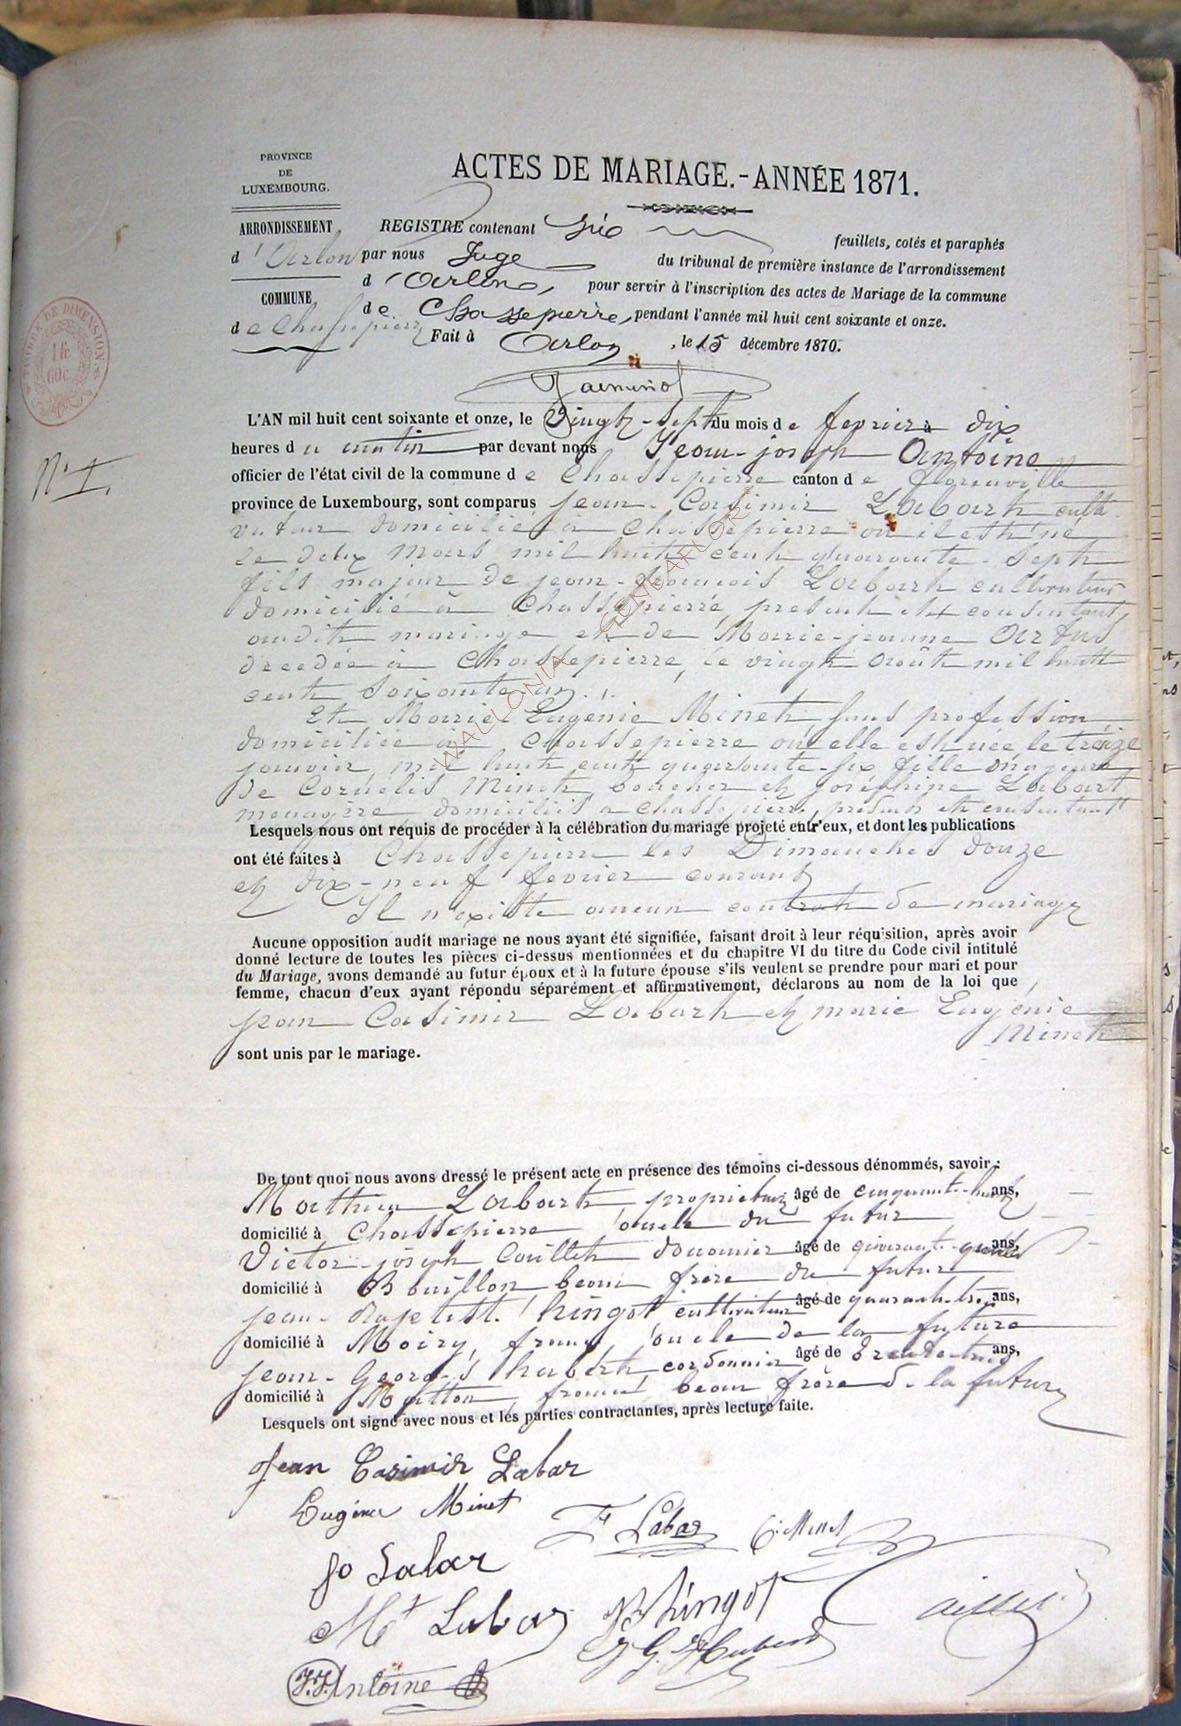 PROVINCE
DE
LUXEMBOURG.
ARRONDISSEMENT
d'Arlon
COMMUNE
de Chassepierre
TIMBRE DE DIMENSION
1 fr
60 c
N° 1.
ACTES DE MARIAGE.-ANNÉE 1871.
REGISTRE contenant six feuillets, cotés et paraphés
par nous Juge du tribunal de première instance de l'arrondissement
d'Arlon, pour servir à l'inscription des actes de Mariage de la commune
de Chassepierre, pendant l'année mil huit cent soixante et onze.
Fait à Arlon, le 15 décembre 1870.
L'AN mil huit cent soixante et onze, le Vingt-sept du mois de fevrier à dix
heures du matin par devant nous Jean-joseph Antoine
officier de l'état civil de la commune de Chassepierre canton de florenville
province de Luxembourg, sont comparus jean-Casimir Labart culti
vateur domicilié à Chassepierre ou il est né
le deux Mars mil huit cent quarante-sept
fils majeur de jean-francois Labart cultivateur
domicilié à Chassepierre, present et consentant
audit mariage et de Marie-jeanne Artus
decedée à Chassepierre, le vingt août mil huit
cent soixante un.
Et Marie Eugénie Minet sans profession,
domiciliée à Chassepierre ou elle est née le treize
janvier mil huit cent quarante-six fille majeure
De Cornelis Minet, boucher et joséphine Labart
menagère, domiciliés a chassepierre, présen et consentant
Lesquels nous ont requis de procéder à la célébration du mariage projeté entr'eux, et dont les publications
ont été faites à Chassepierre les Dimanches douze
et dix-neuf fevrier courant
Il n'existe aucun contrat de mariage
Aucune opposition audit mariage ne nous ayant été signifiée, faisant droit à leur réquisition, après avoir
donné lecture de toutes les pièces ci-dessus mentionnées et du chapitre VI du titre du Code civil intitulé
du Mariage, avons demandé au futur époux et à la future épouse s'ils veulent se prendre pour mari et pour
femme, chacun d'eux ayant répondu séparément et affirmativement, déclarons au nom de la loi que
jean Casimir Labart et marie Eugénie
Minet
sont unis par le mariage.
De tout quoi nous avons dressé le présent acte en présence des témoins ci-dessous dénommés, savoir:
Mathieu Labart propriétaire âgé de cinquante-huit ans,
domicilié à Chassepierre oncle du futur
Victor-joseph douanier âgé de ans,
domicilié à Bouillon beau frère du futur
jean- hingot cultivateur âgé de quarante-trois ans,
domicilié à Moiry, france, oncle de la future
jean-George hubert cordonnier âgé de ans,
domicilié à Matton, france beau frère de la future
Lesquels ont signé avec nous et les parties contractantes, après lecture faite.
Jean Casimir Labar
Eugénie Minet
Labar
Jo Labar
Mt Labar
hingot
J G Hubert
J.J. Antoine
WALLONIA GENEAFLOR